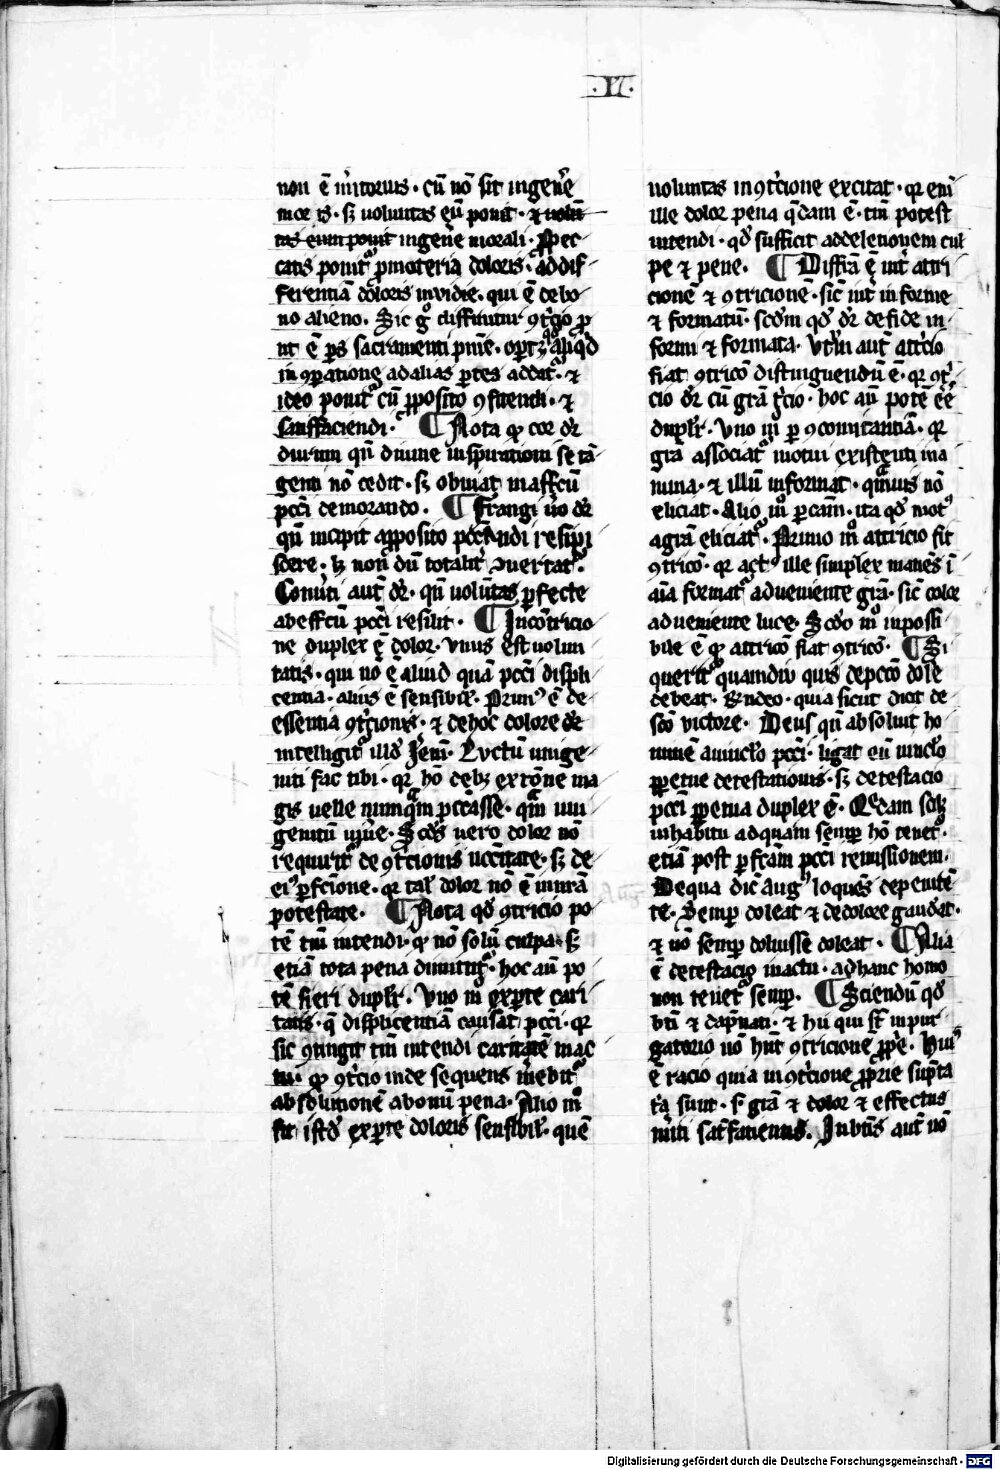 .VI.
non ē m̄itorius · cū nō sit in gen̄e
mor̄ is · sꝫ voluntas eū ponit · ⁊ volū
tas eum ponit in gen̄e morali · Pec
catis ponit᷑ p̱ materia doloris · ad dif
ferentiā doloris invidie · qui ē de bo
no alieno · Sic gͦ diffinitur ꝯt͛cio ꝓ
ut ē ps̄ sacramenti pn̄ie · optꝫ aliqͥd
in ꝯꝑatione ad alias ꝑtes addit᷑ · ⁊
ideo ponit᷑ cū ꝓposito ꝯfitendi · ⁊
satisfaciendi · ¶ Nota ꝙ cor dr̄
durum qn̄ diuine inspirationi se tā
genti nō cedit · sꝫ obuiat in affcū
pcc̄i demorando · ¶ Frangi ūo dr̄
qn̄ incipit a ꝓposito pccandi resipi
scere · lꝫ non dū totalit͛ ꝯuertat᷑ ·
Conuti aut̄ dr̄ · qn̄ volūtas ꝑfecte
ab effcū pcc̄i resilit · ¶ In cōtricio
ne duplex ē dolor · vnus est uolun
tatis · qui nō ē aliud quā pcc̄i displi
centia · alius ē sensibil̄ · Primꝰ ē de
essentia ꝯt͛cionis · ⁊ de hoc dolore dr̄
intelligit᷑ illd̄ Jerm̄ · Luctū unige
niti fac tibi · qr hō debꝫ ex rōne ma
gis uelle nunqͣm peccasse · qͣm uni
genitū uiuē · Scd̄s uero dolor nō
requirit᷑ de ꝯt͛cionis ncc̄itate · sꝫ de
eiꝰ ꝑfcīone · qr tal̄ dolor nō ē in nrā
potestate · ¶ Nota qd̄ ꝯtricio po
tē tm̄ intendi · ꝙ nō solū culpa · sꝫ
etiā tota pena dimittit᷑ · hoc aū po
tē fieri duplr̄ · Vno mͦ ex ꝑte cari
tatis · q̄ displicentiā causat pcc̄i · qr
sic ꝯtingit tm̄ intendi caritatē in ac
tu · ꝙ ꝯt͛cio inde sequens m̄ebit᷑
absolutionē ab omī pena · Alio mͦ
fit istd̄ ex ꝑte doloris sensibil̄ · quē
voluntas in ꝯt͛cione excitat · qr eni
ille dolor pena qͥdam ē · tm̄ potest
intendi · qd̄ sufficit ad deletionem cul
pe ⁊ pene · ¶ Diffrīa ē int͛ attri
cionē ⁊ ꝯtricionē · sic̄ int͛ informe
⁊ formatū · scdm qd̄ dr̄ de fide in
formi ⁊ formata · Vtrū aut̄ att͛cio
fiat ꝯtricō distinguendū ē · qr ꝯt͛
cio dr̄ cū grā t͛cio · hoc aū potē eē
duplr̄ · Vno mͦ ꝑ ꝯcomitantiā · qr
grā associat᷑ motui existenti in a
nima · ⁊ illū informat · qͣmuis nō
eliciat · Alio mͦ ꝑ cām · ita qd̄ motꝰ
a grā eliciat᷑ · Primo mͦ attricio fit
ꝯtricō · qr actꝰ ille simplex manēs ī
aīa format᷑ adueniente grā · sic̄ color
adueniente luce · Scdo mͦ inpossi
bile ē ꝙ attricō fiat ꝯtricō · ¶ Si
querit᷑ quamdiu quis de pccō dole
re debeat · Rn̄deo · quia sicut dicit de
scō victore · Deus qn̄ absoluit ho
minē a vinclo pcc̄i · ligat eū vinclo
ꝑpetue detestationis · sꝫ detestacio
pcc̄i ꝑpetua duplex ē · Qedam sclꝫ
in habitu ad quam semꝑ hō tenet᷑ ·
etiā post ꝑfcām pcc̄i remissionem ·
De qua dic̄ Augꝰ loquēs de penitē
te · Semꝑ doleat ⁊ de dolore gaudeat ·
⁊ nō semꝑ doluisse doleat · ¶ Alia
ē detestacio in actu · ad hanc homo
non tenet᷑ semꝑ · ¶ Sciendū qd̄
bti ⁊ dāpnati · ⁊ hii qui st̄ in pur
gatorio nō hn̄t ꝯtricionē ꝓpe · Huiꝰ
ē racio quia in ꝯt͛cione ꝓprie supta
t͛a sunt · s grā ⁊ dolor ⁊ effectus
m̄iti satisfatienns · In btīs aut̄ nō